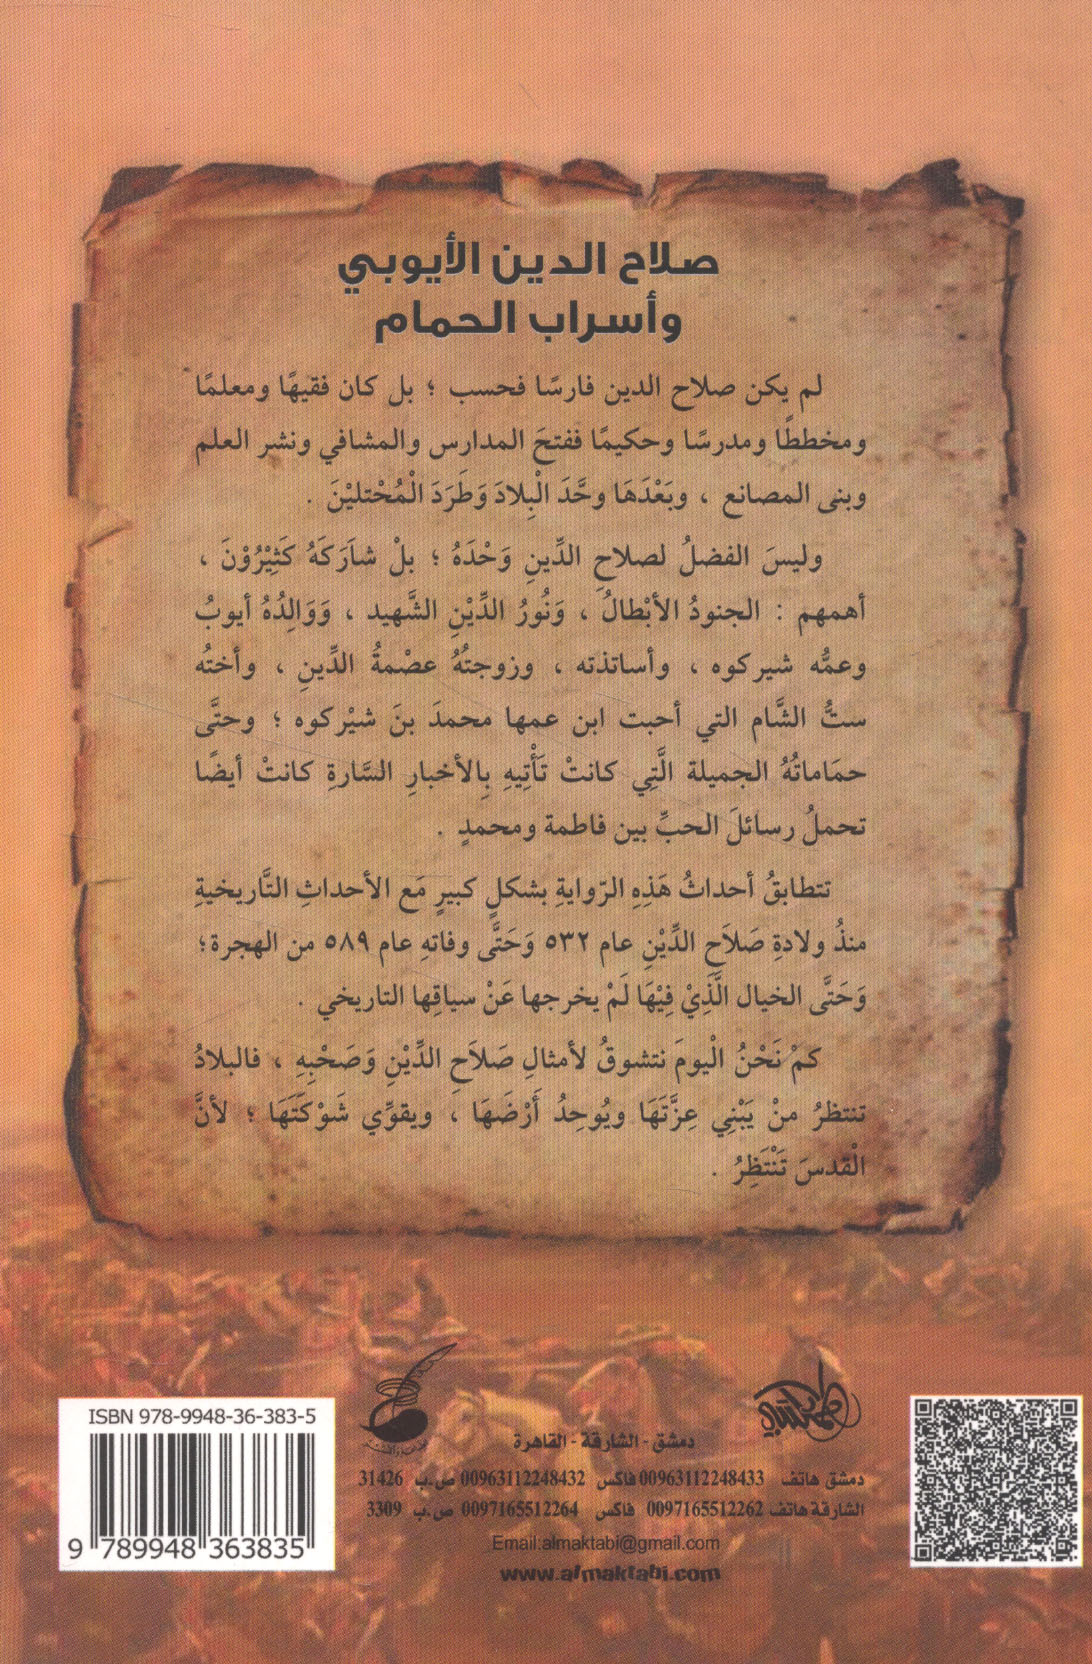 صلاح الدين الأيوبي
وأسراب الحمام
لم يكن صلاح الدين فارسًا فحسب ؛ بل كان فقيهًا ومعلمًا
ومخططًا ومدرسًا وحكيمًا ففتحَ المدارس والمشافي ونشر العلم
وبنى المصانع ، وبَعْدَهَا وحَّدَ الْبِلادَ وَطَرَدَ الْمُحْتليْنَ .
وليسَ الفضلُ لصلاحِ الدِّينِ وَحْدَهُ ؛ بلْ شاَرَكَهُ كَثِيْرُوْنَ ،
أهمهم : الجنودُ الأبْطالُ ، وَنُورُ الدِّيْنِ الشَّهيد ، وَوَالِدُهُ أيوبُ
وعمُّه شيركوه ، وأساتذته ، وزوجتُهُ عصْمةُ الدِّينِ ، وأختُه
ستُّ الشَّام التي أحبت ابن عمها محمدَ بنَ شيْركوه ؛ وحتَّى
حمَاماتُهُ الجميلة الَّتِي كانتْ تَأْتِيهِ بِالأخبارِ السَّارةِ كانتْ أيضًا
تحملُ رسائلَ الحبِّ بين فاطمة ومحمدٍ .
تتطابقُ أحداثُ هَذِهِ الرّوايةِ بشكلٍ كبيرٍ مَع الأحداثِ التَّاريخيةِ
منذُ ولادةِ صَلاَحِ الدِّيْنِ عام ٥٣٢ وَحَتَّى وفاتهِ عام ٥٨٩ من الهجرة؛
وَحَتَّى الخيال الَّذِيْ فِيْهَا لَمْ يخرجها عَنْ سياقِها التاريخي .
كمْ نَحْنُ الْيومَ نتشوقُ لأمثالِ صَلاَحِ الدِّيْنِ وَصَحْبِهِ ، فالبلادُ
تنتظرُ منْ يَبْنِي عِزَّتَهَا ويُوحِدُ أَرْضَهَا ، ويقوِّي شَوْكَتَهَا ؛ لأنَّ
الْقدسَ تَنْتَظِرُ .
ISBN 978-9948-36-383-5
9 789948 363835
دمشق - الشارقة - القاهرة
دمشق هاتف 00963112248433 فاكس 00963112248432 ص.ب 31426
الشارقة هاتف 0097165512262 فاكس 0097165512264 ص.ب 3309
Email:almaktabi@gmail.com
www.almaktabi.com